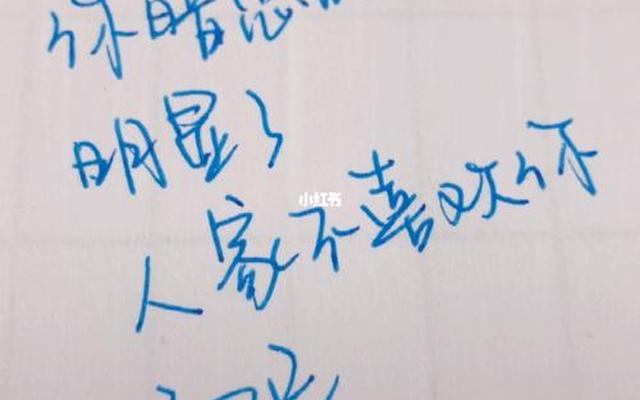 你暗恋
明显了
人家不喜欢你
小红书